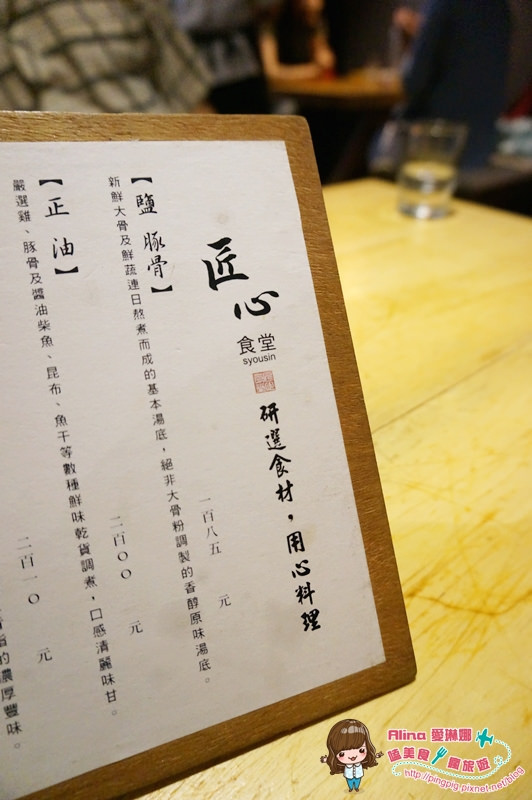 匠心
食堂
syousin
研選食材，用心料理
【鹽豚骨】
一百八五 元
新鮮大骨及鮮蔬連日熬煮而成的基本湯底，絕非大骨粉調製的香醇原味湯底。
【正油】
二百００ 元
嚴選雞、豚骨及醬油柴魚、昆布、魚干等數種鮮味乾貨調煮，口感清麗味甘。
二百一０ 元
的濃厚豐味。
Alina 愛琳娜
嗑美食 瘋旅遊
http://pingpig.pixnet.net/blog